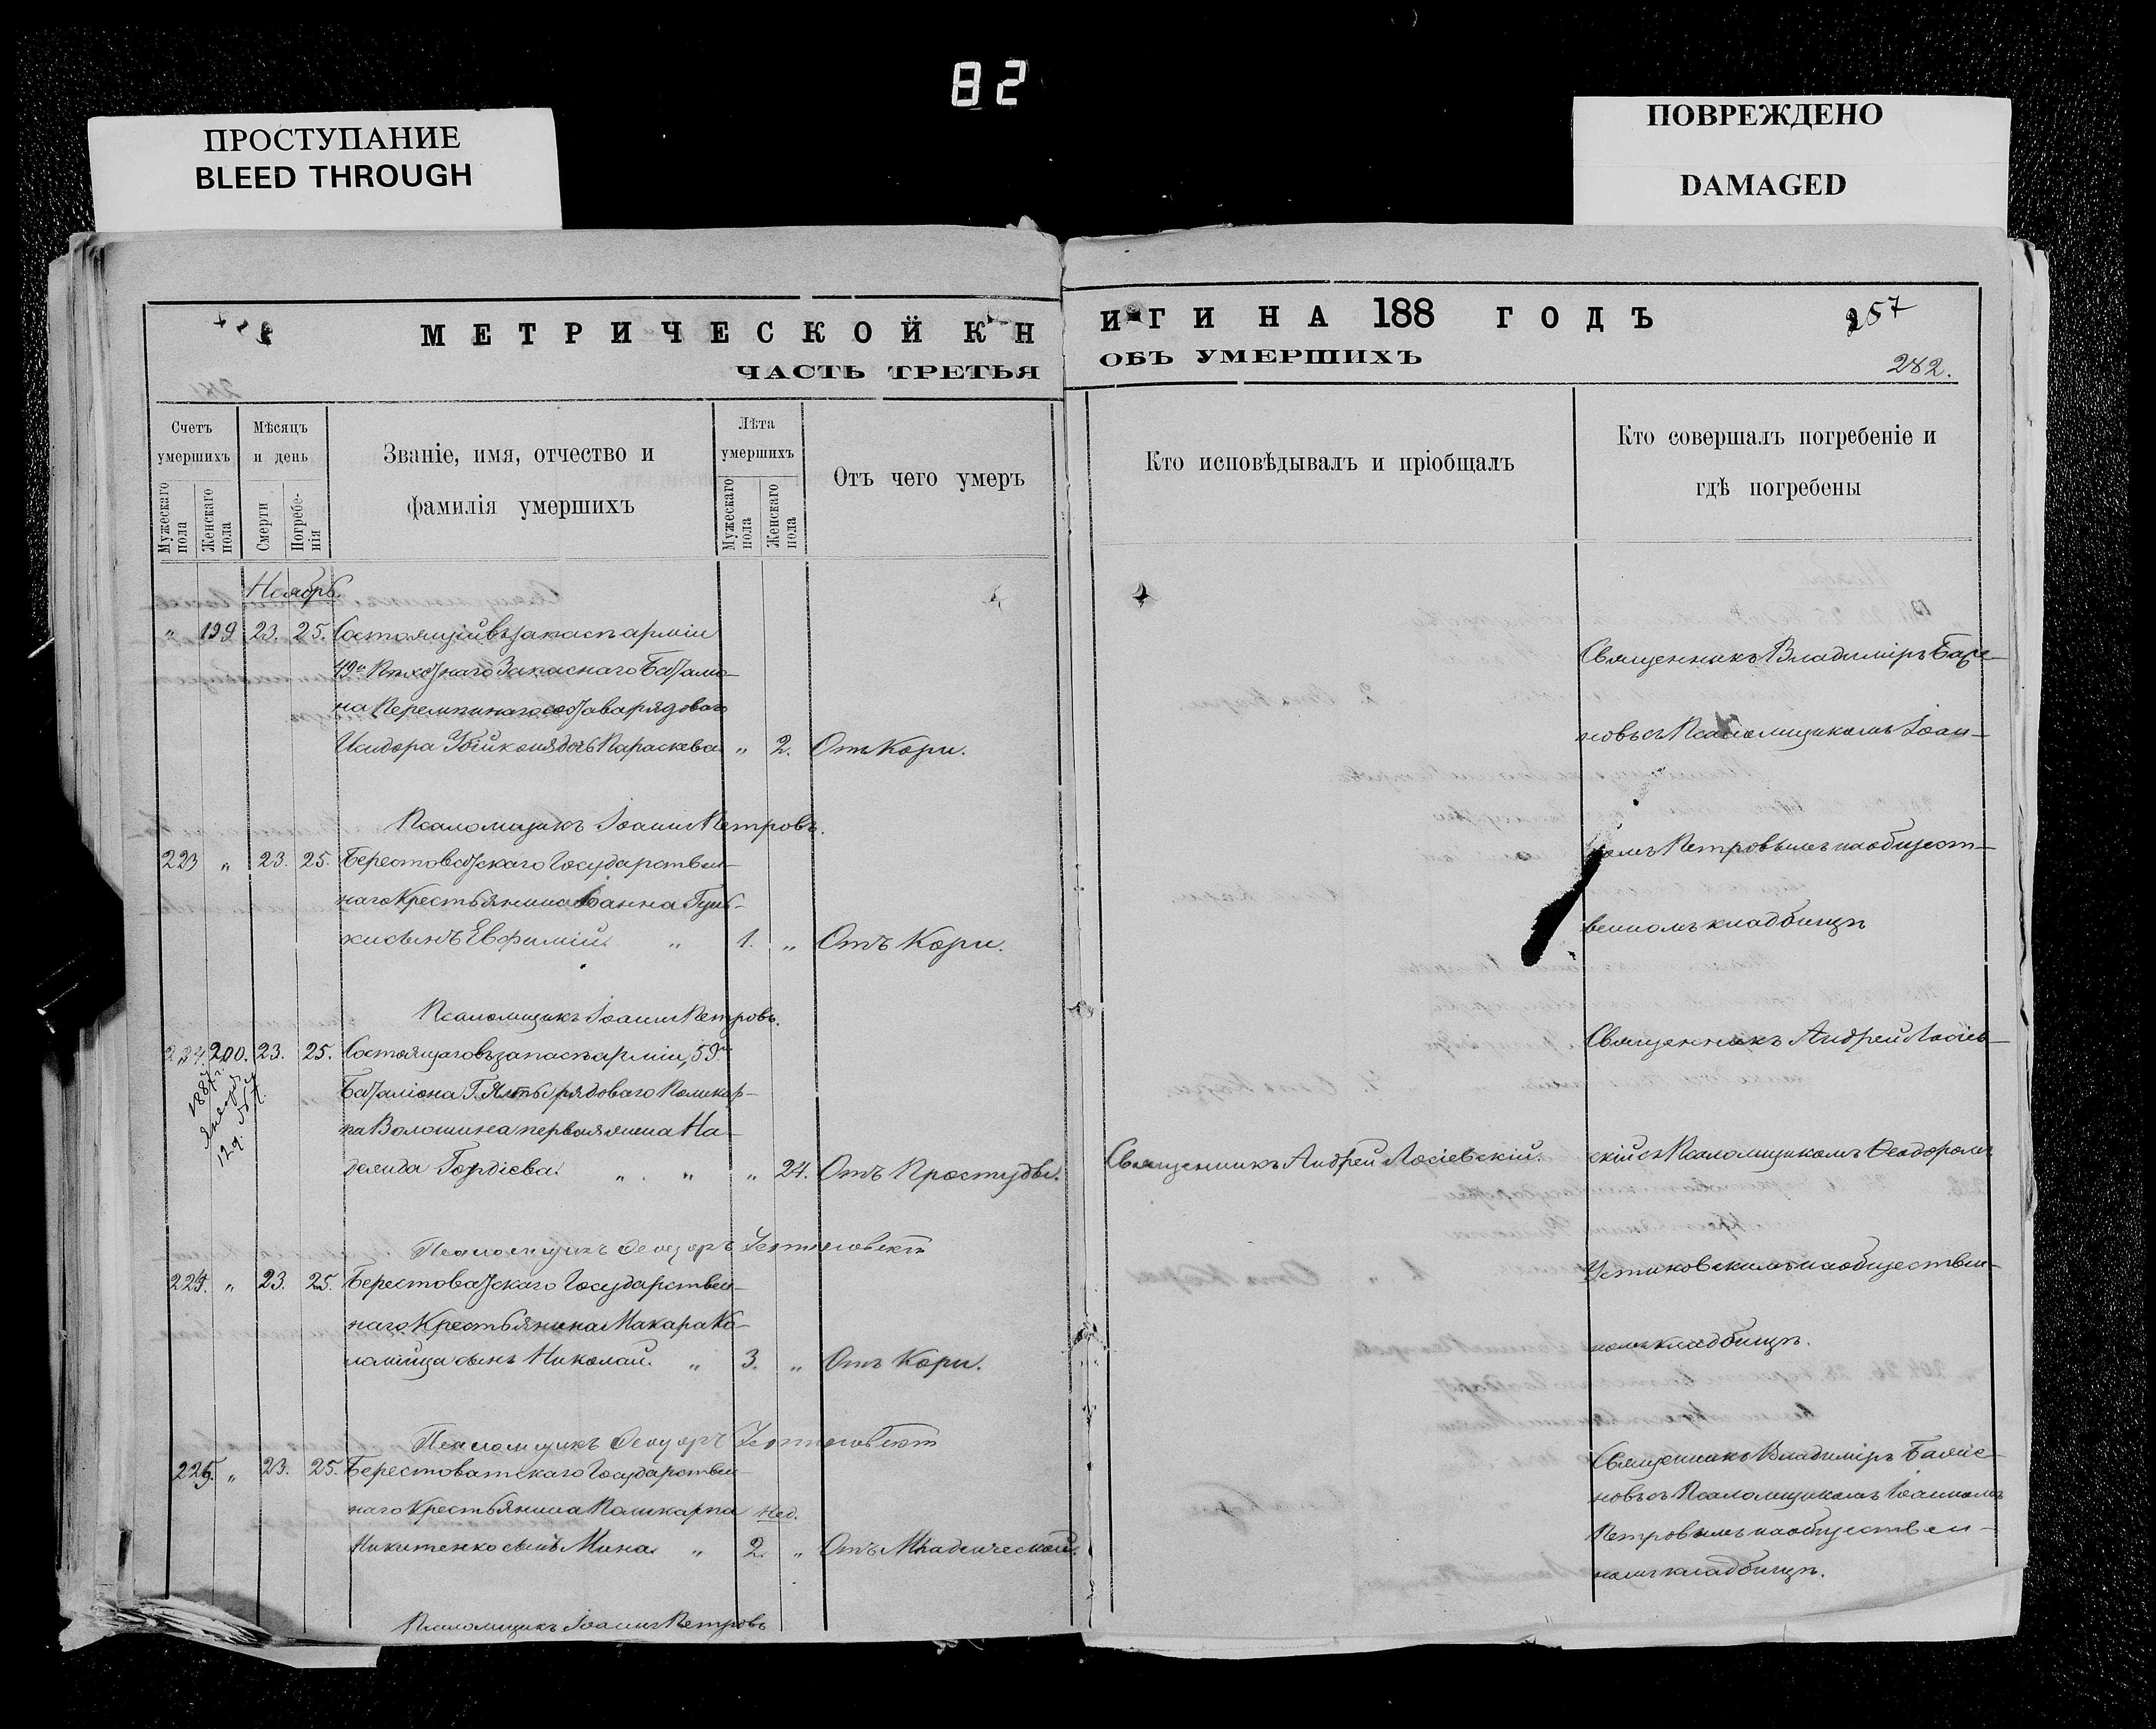 82
ПРОСТУПАНИЕ
BLEED THROUGH
ПОВРЕЖДЕНО
DAMAGED
МЕТРИЧЕСКОЙ КН
ЧАСТЬ ТРЕТЬЯ
Счетъ умершихъ
Мужескаго пола
Женскаго пола
Мѣсяцъ и день
Смерти
Погребенія
Званіе, имя, отчество и
фамилія умершихъ
Лѣта умершихъ
Мужескаго пола
Женскаго пола
Отъ чего умеръ
Ноябрь.
" 199 23. 25. Состоящій въ запасѣ арміи
49го Пѣхотнаго Запаснаго Батало-
на Перемѣннаго состава рядоваго
Исидора дочь Параскева " 2. Отъ Кори.
Псаломщикъ Іоаннъ Петровъ.
223 " 23. 25. Берестоватскаго Государствен-
наго Крестьянина Іоанна
сынъ Евфимій. " 1. " Отъ Кори.
Псаломщикъ Іоаннъ Петровъ.
200. 23. 25. Состоящаго въ запасѣ арміи, 59го
Баталіона рядоваго Поликар-
па Волошина первая жена На-
дежда Гордіева. " " " 24. Отъ Простуды.
Псаломщикъ Ѳеодоръ
224. " 23. 25. Берестоватскаго Государствен-
наго Крестьянина Макара Ко-
ломійца сынъ Николай. " 3. " Отъ Кори.
Псаломщикъ Ѳеодоръ
225. " 23. 25. Берестоватскаго Государствен-
наго Крестьянина Поликарпа нед.
Никитенко сынъ Мина. " 2. " Отъ Младенческой.
Псаломщикъ Іоаннъ Петровъ
ИГИ НА 188 ГОДЪ
257
ОБЪ УМЕРШИХЪ
282.
Кто исповѣдывалъ и пріобщалъ
Кто совершалъ погребеніе и
гдѣ погребены
Священникъ Владиміръ
новъ съ Псаломщикомъ Іоан-
номъ Петровымъ на общест-
венномъ кладбищѣ
Священникъ Андрей Лосіев-
Священникъ Андрей Лосіевскій.
скій съ Псаломщикомъ Ѳеодоромъ
Устиновскимъ на обществен-
номъ кладбищѣ.
Священникъ Владиміръ
новъ съ Псаломщикомъ Іоанномъ
Петровымъ на обществен-
номъ кладбищѣ.